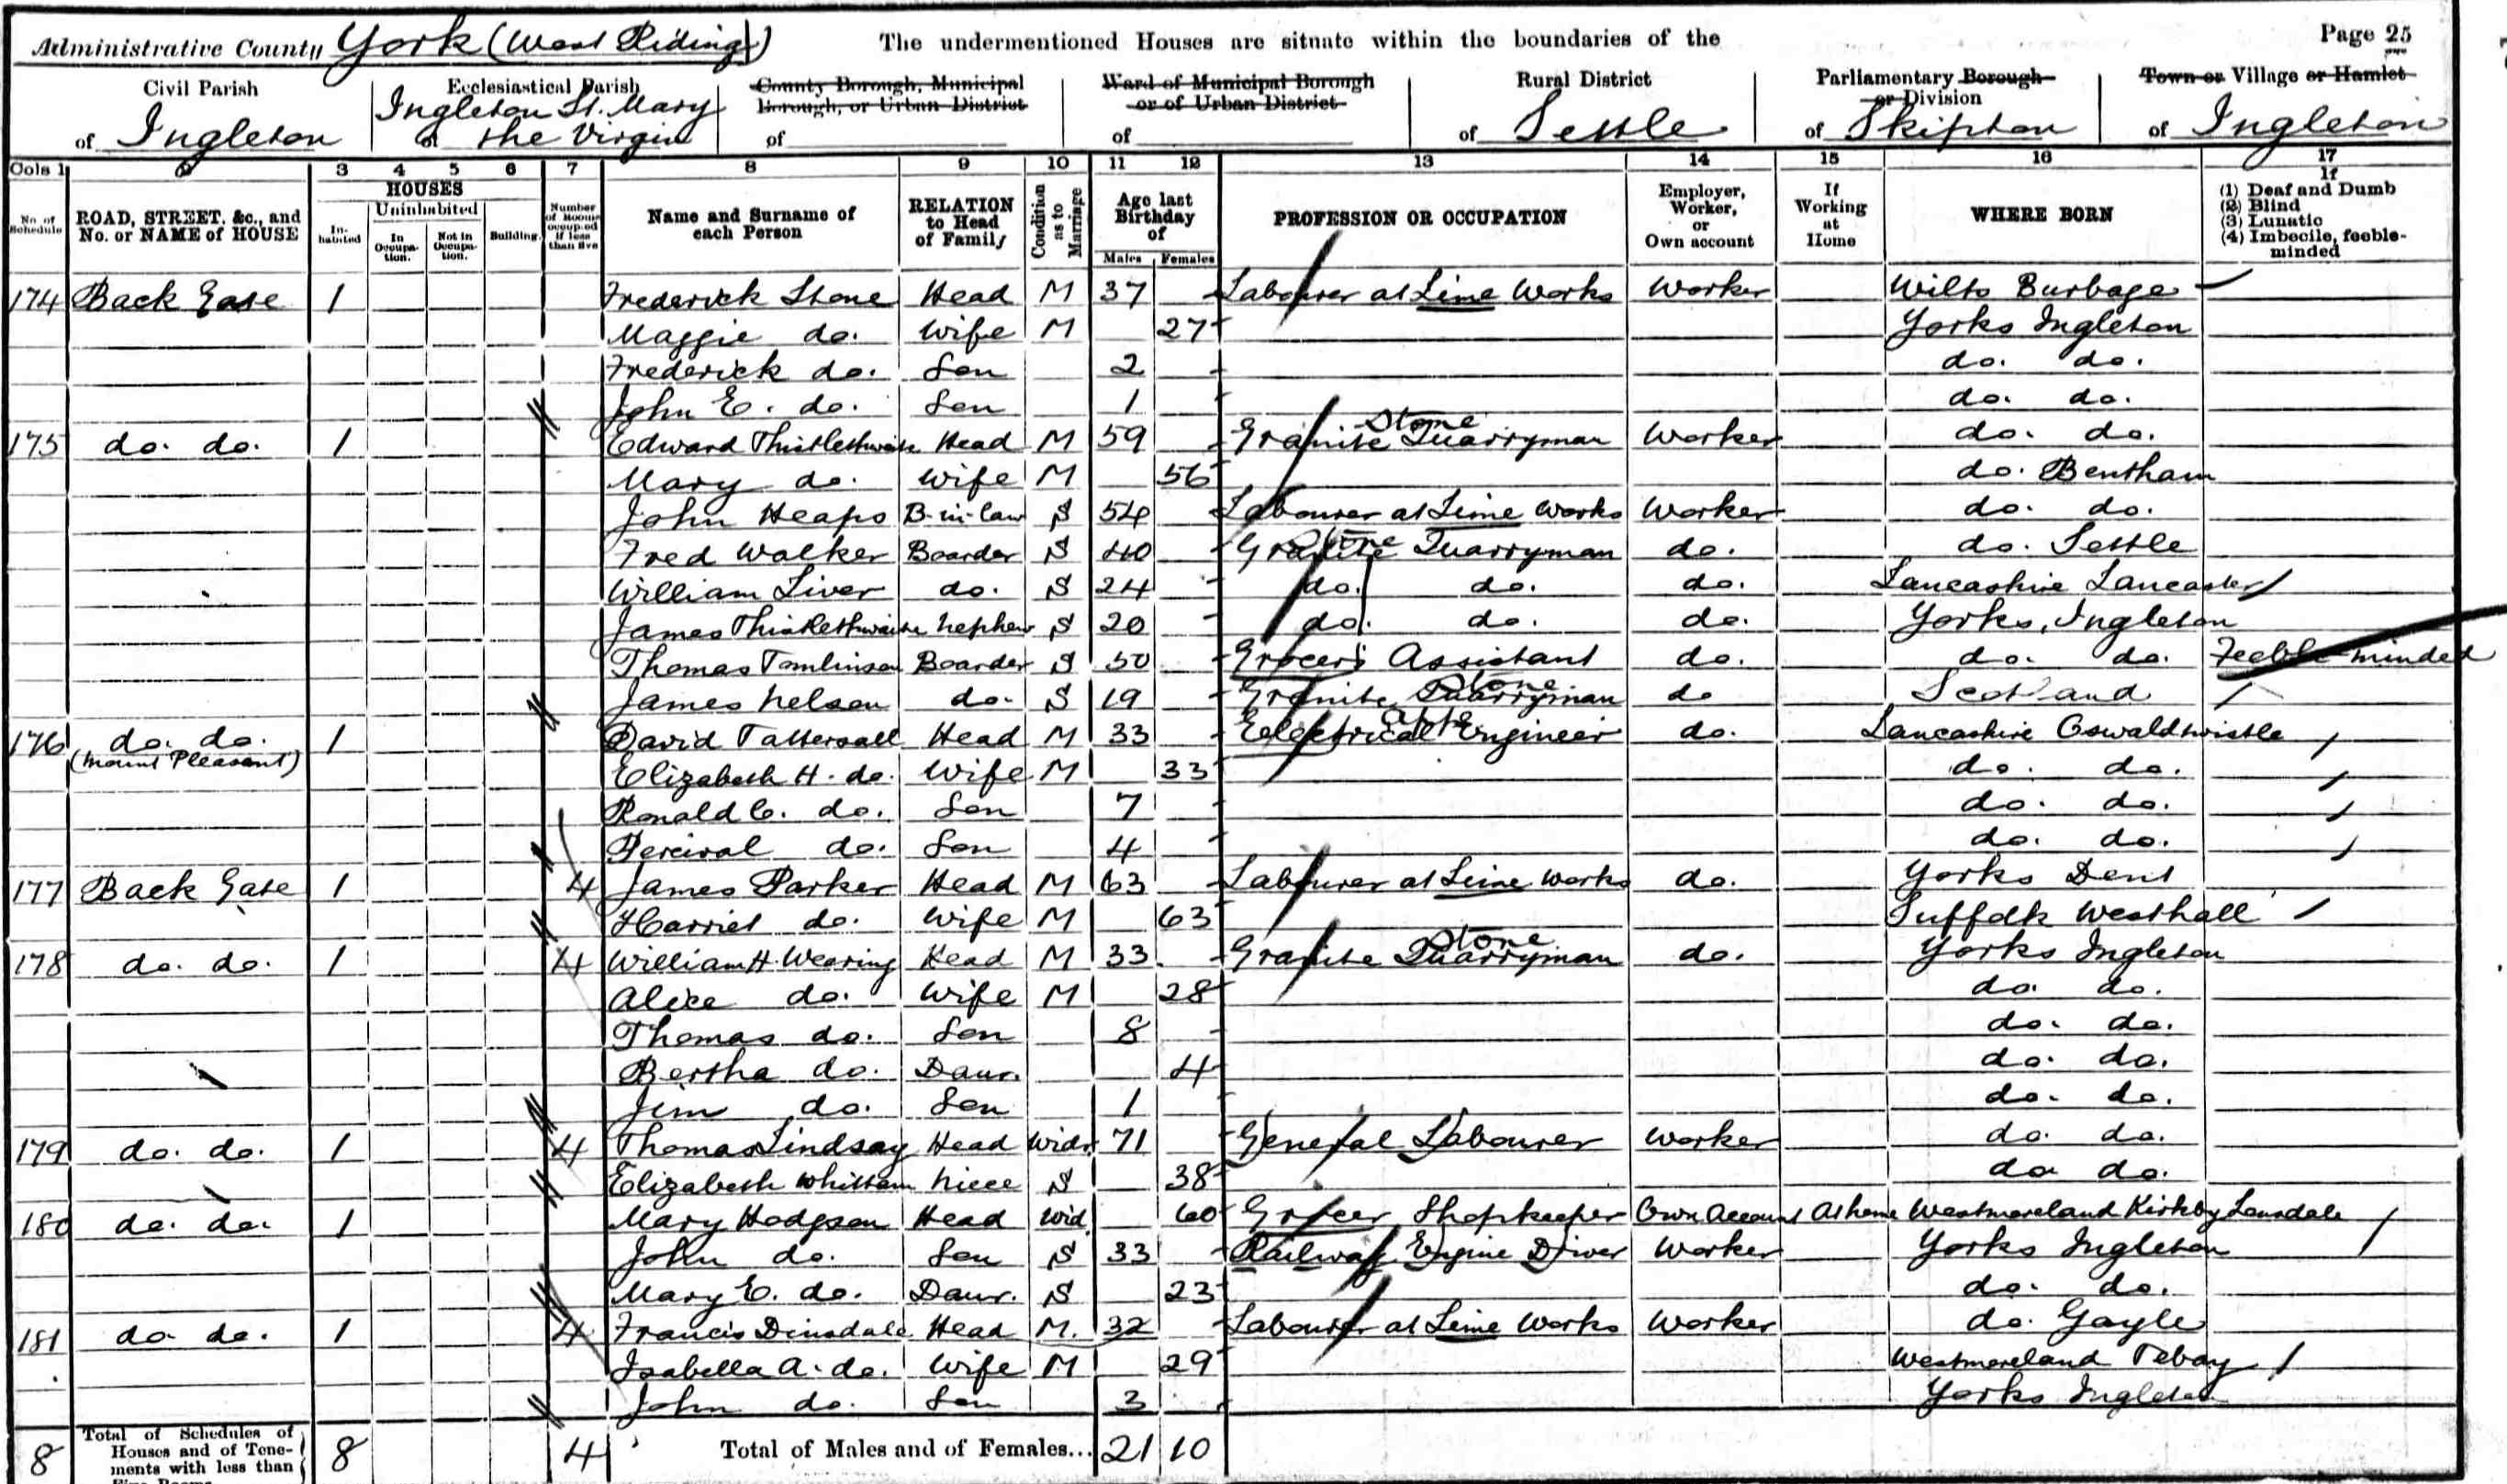 Administrative County York (West Riding) The undermentioned Houses are situate within the boundaries of the Page 25
Civil Parish Ecclesiastical Parish County Borough, Municipal Borough, or Urban District Ward of Municipal Borough or of Urban District Rural District Parliamentary Borough or Division Town or Village or Hamlet
of Ingleton of Ingleton St. Mary the Virgin of of of Settle of Skipton of Ingleton
Cols 1 2 3 4 5 6 7 8 9 10 11 12 13 14 15 16 17
No. of Schedule ROAD, STREET, &c., and No. or NAME of HOUSE HOUSES Inhabited Uninhabited In Occupation. Not in Occupation. Building. Number of Rooms occupied if less than five Name and Surname of each Person RELATION to Head of Family Condition as to Marriage Age last Birthday of Males Females PROFESSION OR OCCUPATION Employer, Worker, or Own account If Working at Home WHERE BORN If (1) Deaf and Dumb (2) Blind (3) Lunatic (4) Imbecile, feeble-minded
174 Back Gate 1 Frederick Stone Head M 37 Labourer at Lime Works Worker Wilts Burbage
Maggie do. Wife M 27 Yorks Ingleton
Frederick do. Son 2 do. do.
John E. do. Son 1 do. do.
175 do. do. 1 Edward Thistlethwaite Head M 59 Granite Stone Quarryman Worker do. do.
Mary do. Wife M 56 do. Bentham
John Heaps B-in-law S 54 Labourer at Lime Works Worker do. do.
Fred Walker Boarder S 40 Granite Stone Quarryman do. do. Settle
William Liver do. S 24 do. do. do. Lancashire Lancaster
James Thistlethwaite Nephew S 20 do. do. do. Yorks, Ingleton
Thomas Tomlinson Boarder S 50 Grocer's Assistant do. do. do. Feeble-minded
James Nelson do. S 19 Granite Stone Quarryman do Scotland
176 do. do. (Mount Pleasant) 1 David Tattersall Head M 33 Electrical Engineer do. Lancashire Oswaldtwistle
Elizabeth H. do. Wife M 33 do. do.
Ronald C. do. Son 7 do. do.
Percival do. Son 4 do. do.
177 Back Gate 1 4 James Parker Head M 63 Labourer at Lime Works do. Yorks Dent
Harriet do. Wife M 63 Suffolk Westhall
178 do. do. 1 4 William H. Wearing Head M 33 Granite Stone Quarryman do. Yorks Ingleton
Alice do. Wife M 28 do. do.
Thomas do. Son 8 do. do.
Bertha do. Daur. 4 do. do.
Jim do. Son 1 do. do.
179 do. do. 1 4 Thomas Lindsay Head Widr 71 General Labourer Worker do. do.
Elizabeth Whittam Niece S 38 do do.
180 do. do. 1 Mary Hodgson Head Wid 60 Grocer Shopkeeper Own Account At home Westmoreland Kirkby Lonsdale
John do. Son S 33 Railway Engine Driver Worker Yorks Ingleton
Mary E. do. Daur. S 23 do. do.
181 do do. 1 4 Francis Dinsdale Head M. 32 Labourer at Lime Works Worker do. Gayle
Isabella A. do. Wife M 29 Westmoreland Tebay
John do. Son 3 Yorks Ingleton
8 Total of Schedules of Houses and of Tenements with less than 8 4 Total of Males and of Females... 21 10